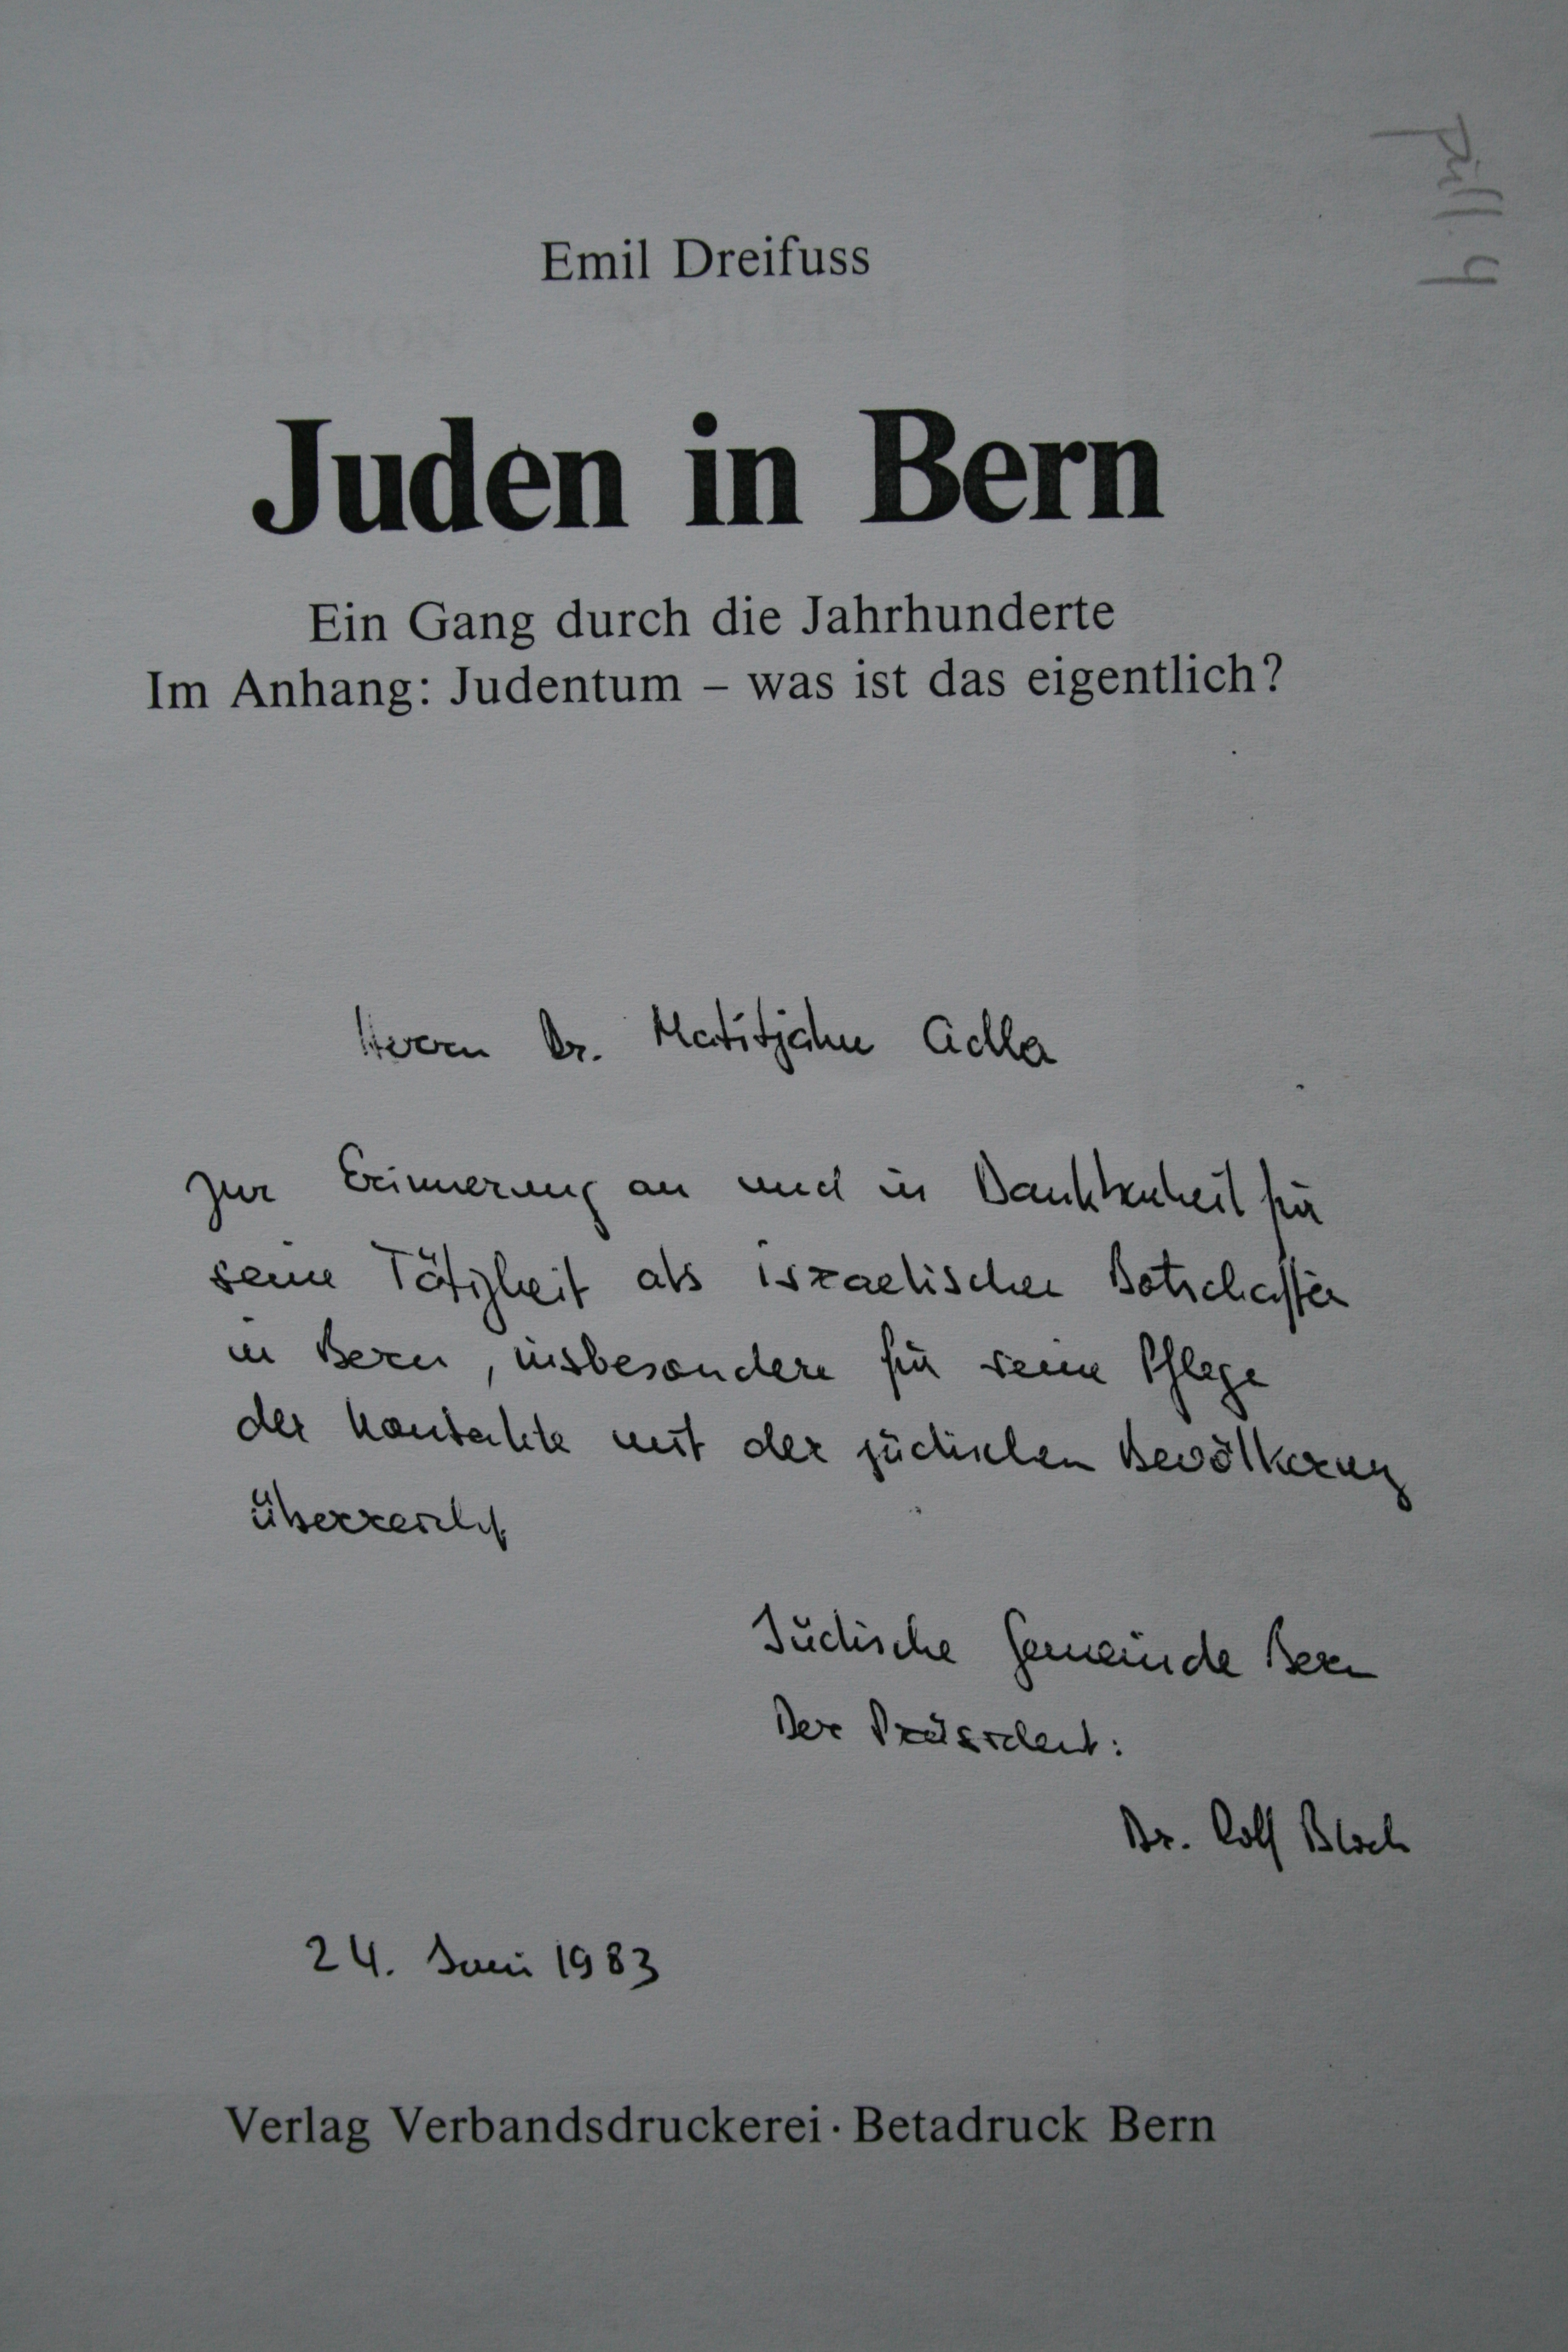 Emil Dreifuss
Juden in Bern
Ein Gang durch die Jahrhunderte
Im Anhang: Judentum – was ist das eigentlich?
Herrn Dr. Matitjahu
zur Erinnerung an und in Dankbarkeit für
seine Tätigkeit als israelischer Botschafter
in Bern, insbesondere für seine Pflege
der Kontakte mit der jüdischen Bevölkerung
überreicht
Jüdische Gemeinde Bern
Der Präsident:
Dr. Rolf Bloch
24. Juni 1983
Verlag Verbandsdruckerei · Betadruck Bern